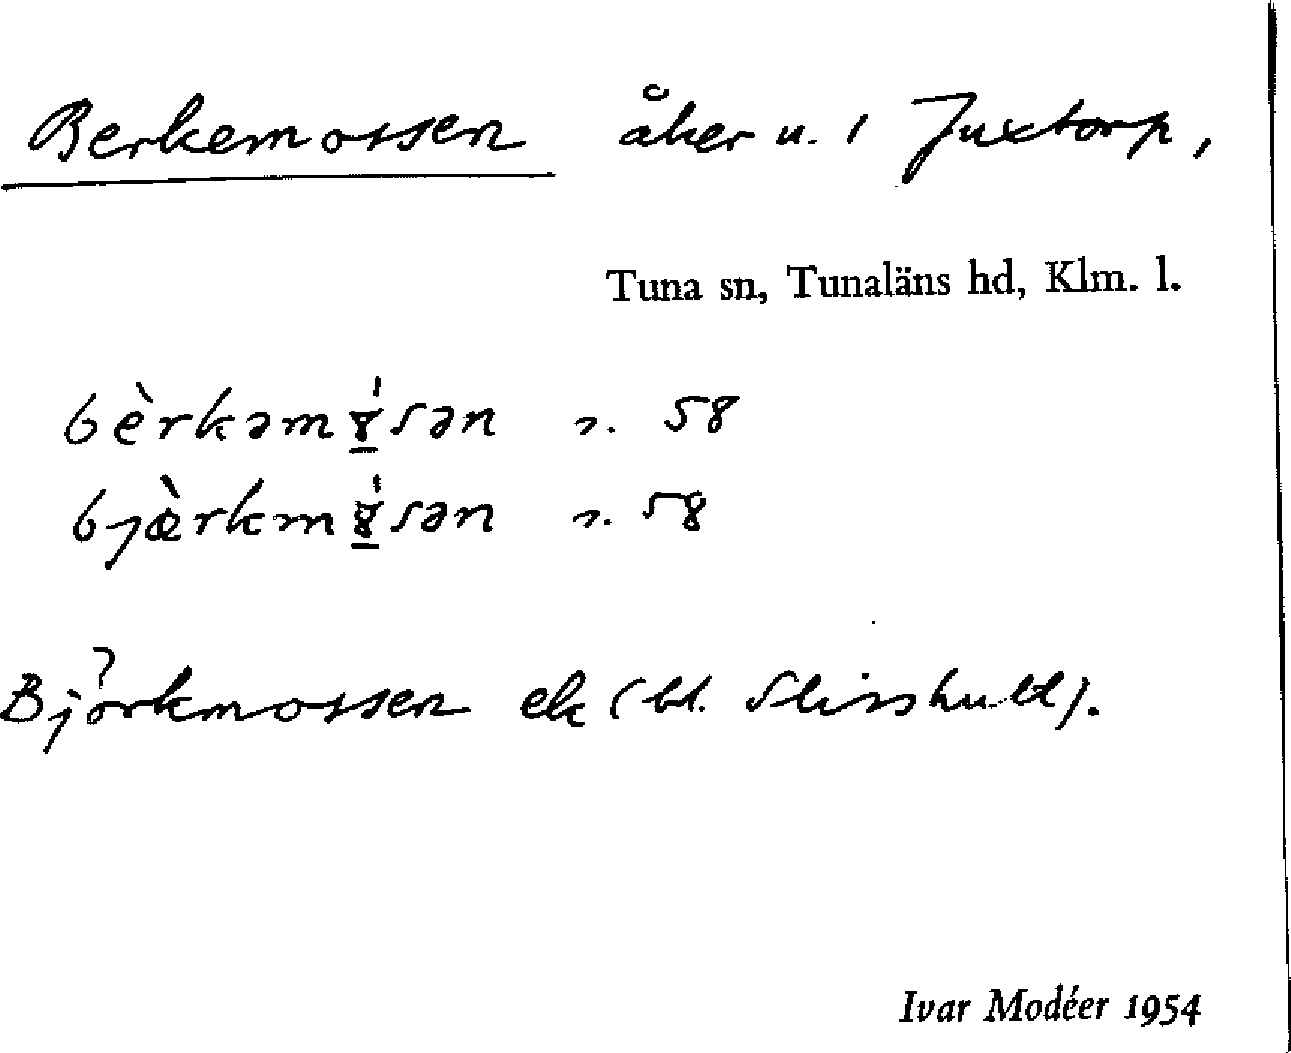 Berkemossen åker u. 1 Juxtorp,
Tuna sn, Tunaläns hd, Klm. l.
bèrkəmɤ̱́sən s. 58
bjæ̀rkmɤ̱́sən s. 58
Björkmossen ek (bl. Slisshult).
Ivar Modéer 1954